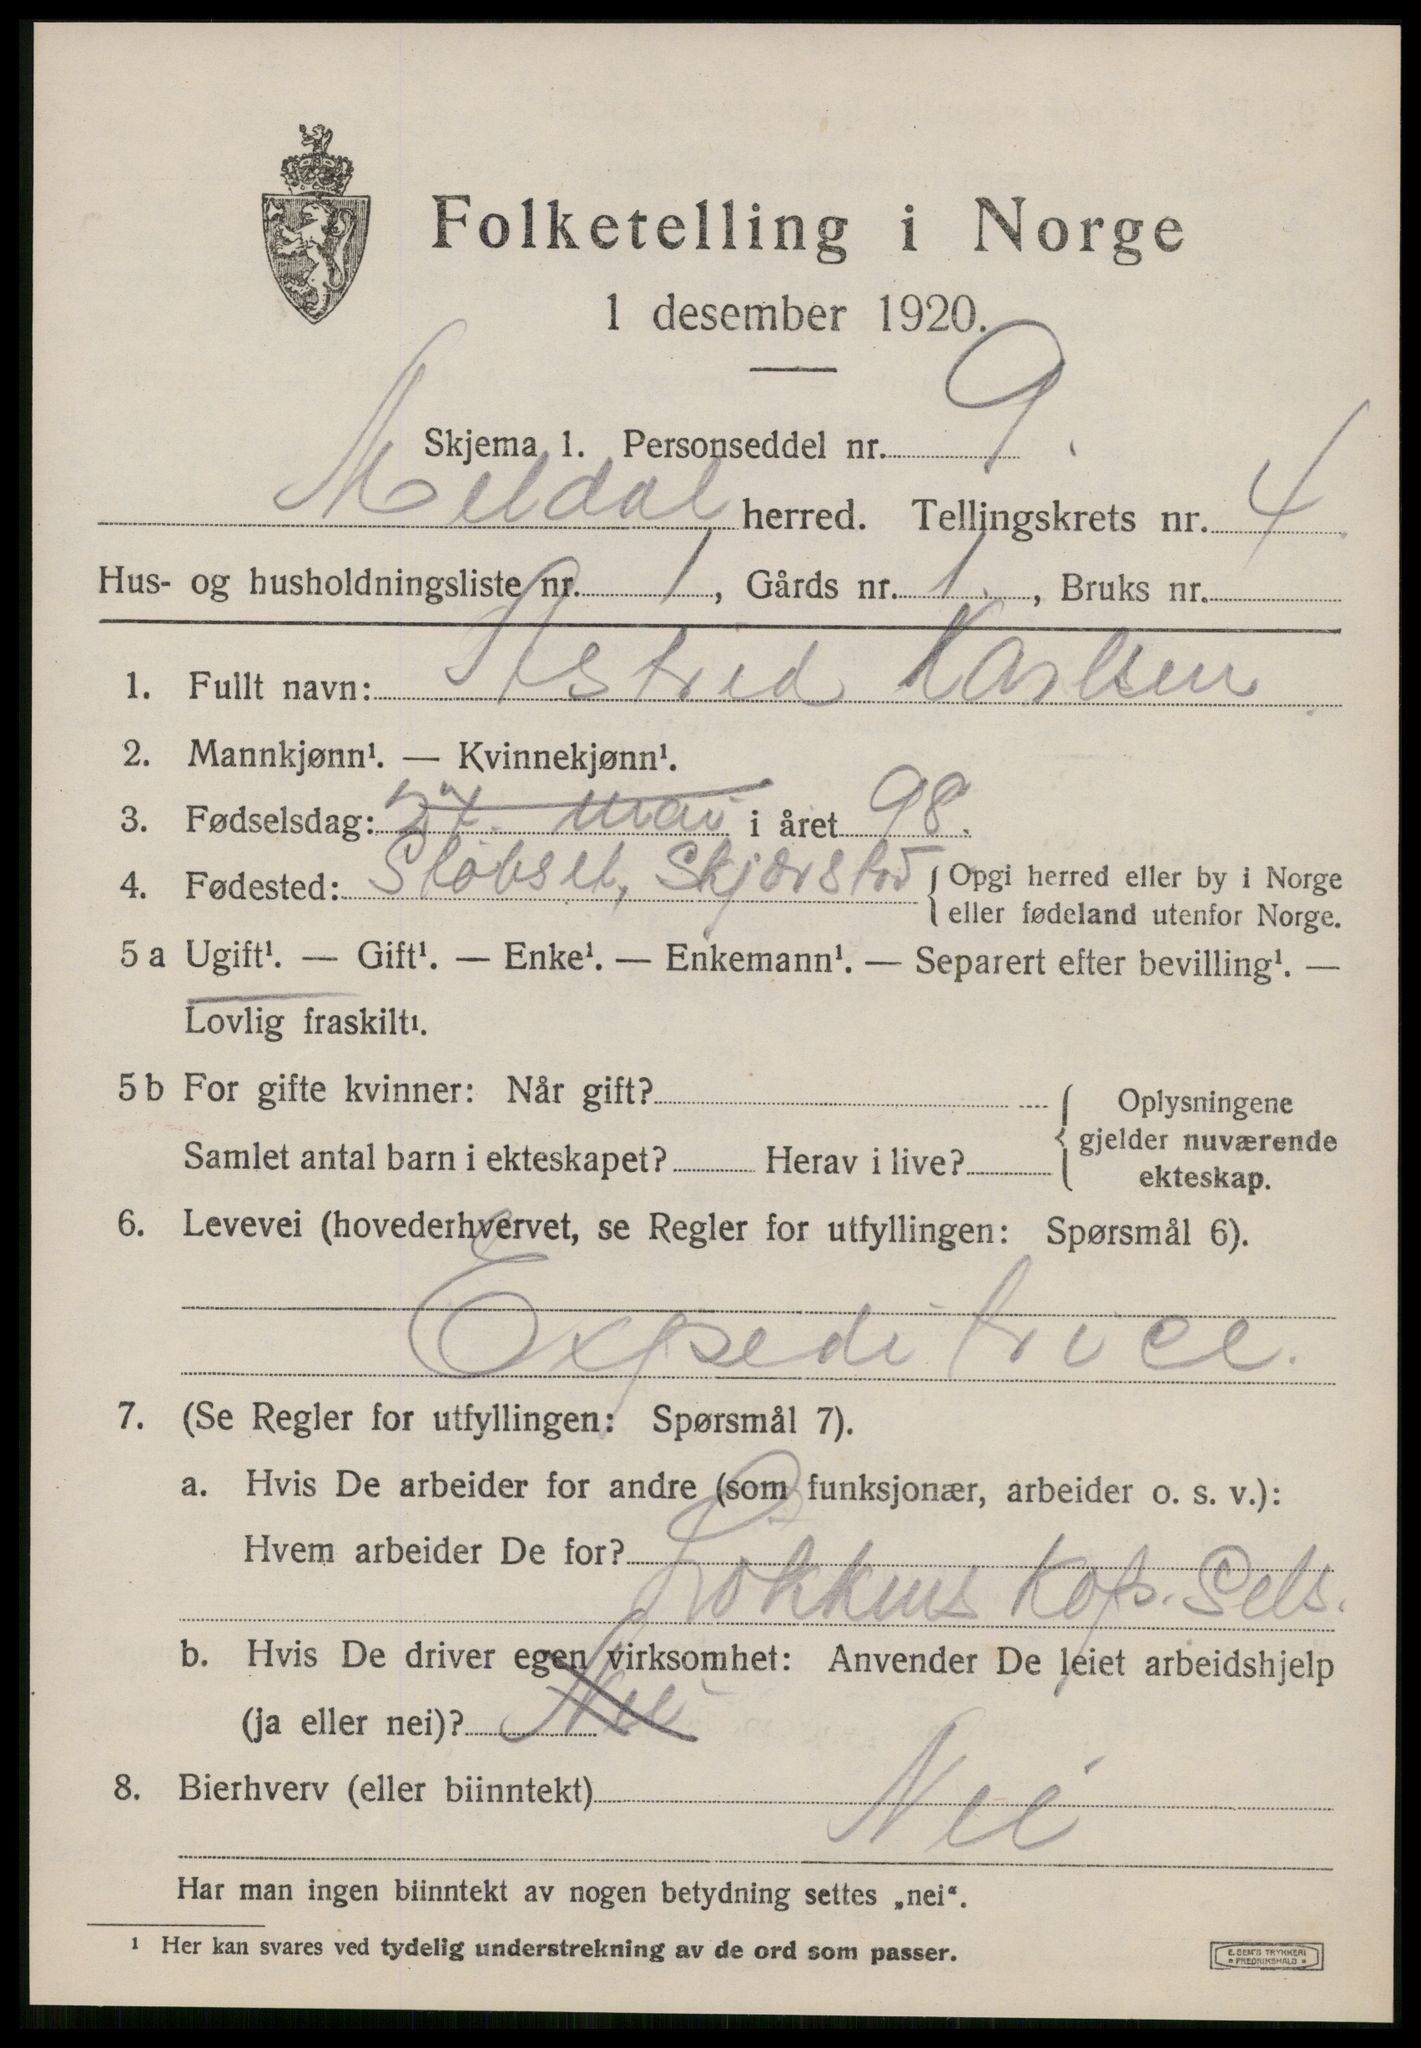 Folketelling i Norge
1 desember 1920.
Skjema 1. Personseddel nr. 9.
Meldal herred. Tellingskrets nr. 4
Hus- og husholdningsliste nr. 1, Gårds nr. 1., Bruks nr.
1. Fullt navn: Astrid Karlsen
2. Mannkjønn¹. — Kvinnekjønn¹.
3. Fødselsdag: mai i året 98.
4. Fødested: Støvset, Skjærstad {Opgi herred eller by i Norge
eller fødeland utenfor Norge.
5 a Ugift¹. — Gift¹. — Enke¹. — Enkemann¹. — Separert efter bevilling¹. —
Lovlig fraskilt¹.
5 b For gifte kvinner: Når gift? { Oplysningene
gjelder nuværende
Samlet antal barn i ekteskapet? Herav i live? ekteskap.
6. Levevei (hovederhvervet, se Regler for utfyllingen: Spørsmål 6).
Expeditrice.
7. (Se Regler for utfyllingen: Spørsmål 7).
a. Hvis De arbeider for andre (som funksjonær, arbeider o. s. v.):
Hvem arbeider De for?
Løkkens Kop. Sels.
b. Hvis De driver egen virksomhet: Anvender De leiet arbeidshjelp
(ja eller nei)? Nei
8. Bierhverv (eller biinntekt) Nei
Har man ingen biinntekt av nogen betydning settes „nei“.
¹ Her kan svares ved tydelig understrekning av de ord som passer.
E. SEM'S TRYKKERI
* FREDRIKSHALD *